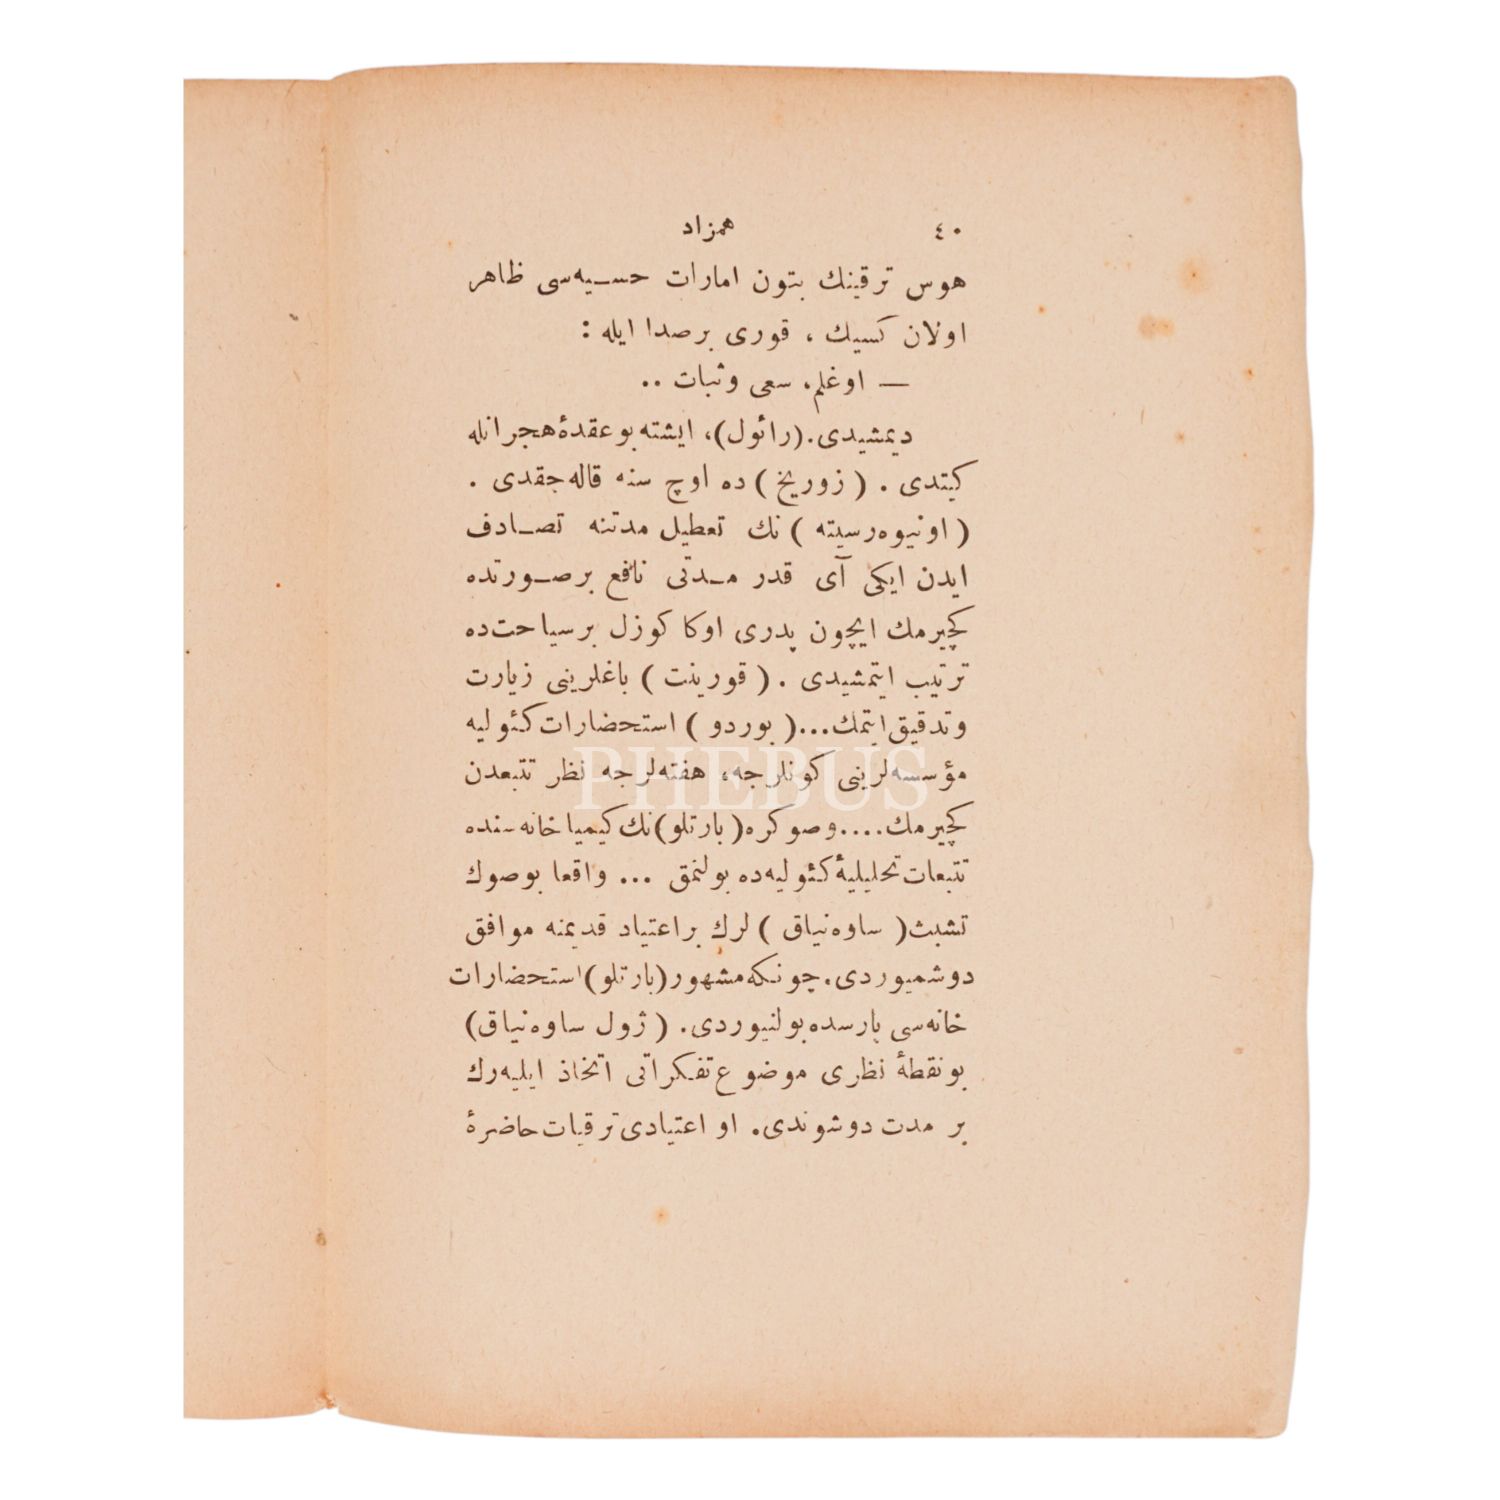 ٤٠ همزاد
هوس ترقينك بتون امارات حسيه‌سى ظاهر
اولان كسيك ، قورى برصدا ايله :
— اوغلم، سعى وثبات ..
ديمشيدى. (رائول)، ايشته بو عقدۀ هجرانله
كيتدى . ( زوريخ ) ده اوچ سنه قاله‌جقدى .
( اونيوه‌رسيته ) نك تعطيل مدتنه تصادف
ايدن ايكى آى قدر مدتى نافع برصورتده
كچيرمك ايچون پدرى اوكا كوزل برسياحت‌ده
ترتيب ايتمشيدى . ( قورينت ) باغلرينى زيارت
وتدقيق ايتمك... ( بوردو ) استحضارات كئوليه
مؤسسه‌لرينى كونلرجه، هفته‌لرجه نظر تتبعدن
كچيرمك.... وصوكره ( بارتلو ) نك كيميا خانه سنده
تتبعات تحليليۀ كئوليه‌ده بولنمق ... واقعا بوصوك
تشبث ( ساوه‌نياق ) لرك براعتياد قديمنه موافق
دوشميوردى. چونكه مشهور ( بارتلو ) استحضارات
خانه‌سى پارسده بولنيوردى. ( ژول ساوه‌نياق )
بونقطۀ نظرى موضوع تفكراتى اتخاذ ايليه‌رك
بر مدت دوشوندى. او اعتيادى ترقيات حاضرۀ
PHEBUS